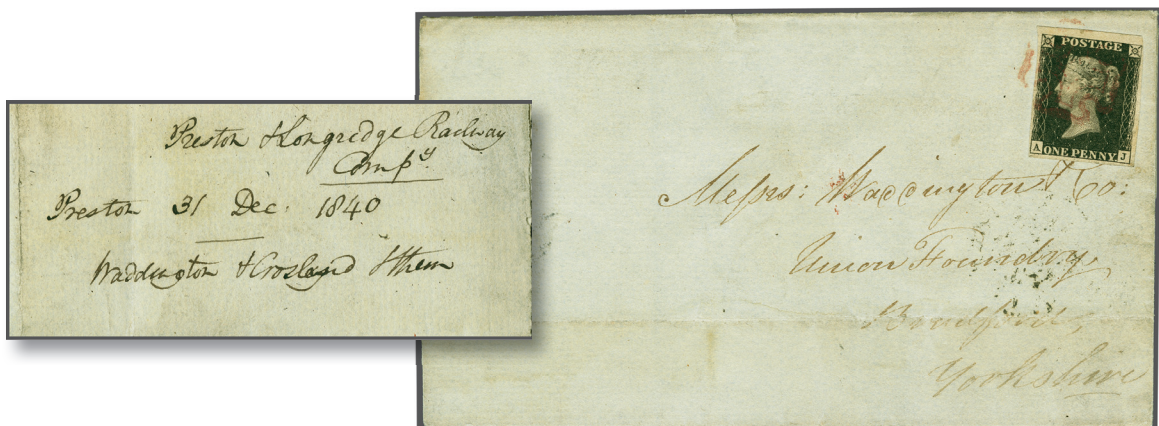 Preston & Longridge Railway
Compy.
Preston 31 Dec. 1840
Waddington & Crosland & them
POSTAGE
A ONE PENNY J
Messrs: Waddington & Co:
Union Foundry,
Bradford,
Yorkshire